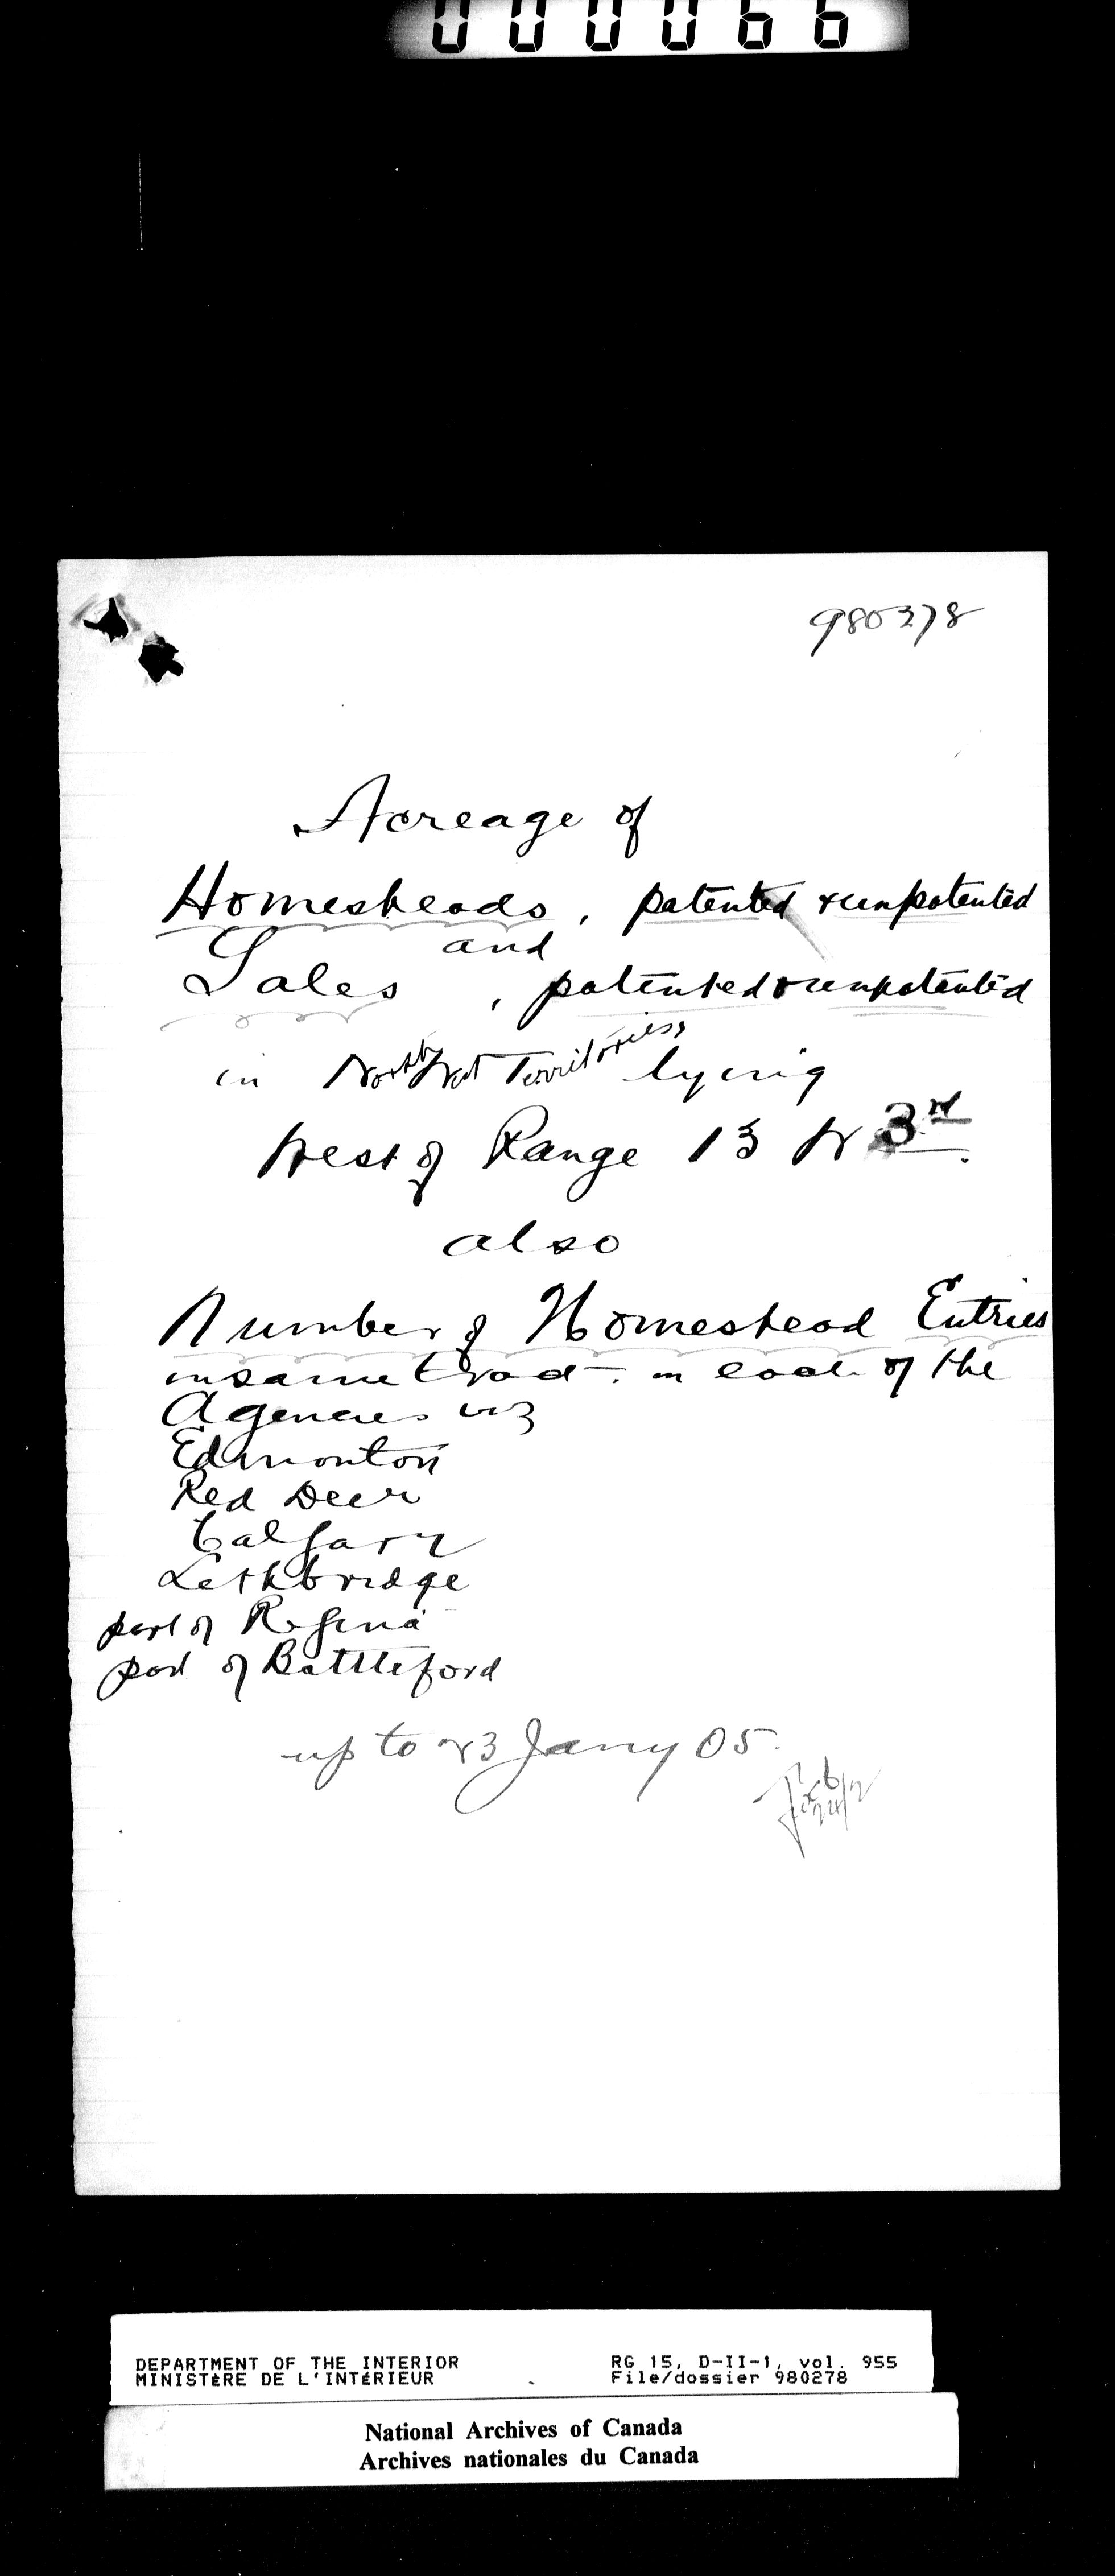 000066
980278
Acreage of
Homesteads, patented & unpatented
and
Sales, patented & unpatented
in North West Territories, lying
West of Range 13 W 3rd.
also
Number of Homestead Entries
in same tract in each of the
Agencies viz
Edmonton
Red Deer
Calgary
Lethbridge
part of Regina
part of Battleford
up to 23 Jany 05.
DEPARTMENT OF THE INTERIOR
MINISTÈRE DE L'INTÉRIEUR
RG 15, D-II-1, vol. 955
File/dossier 980278
National Archives of Canada
Archives nationales du Canada